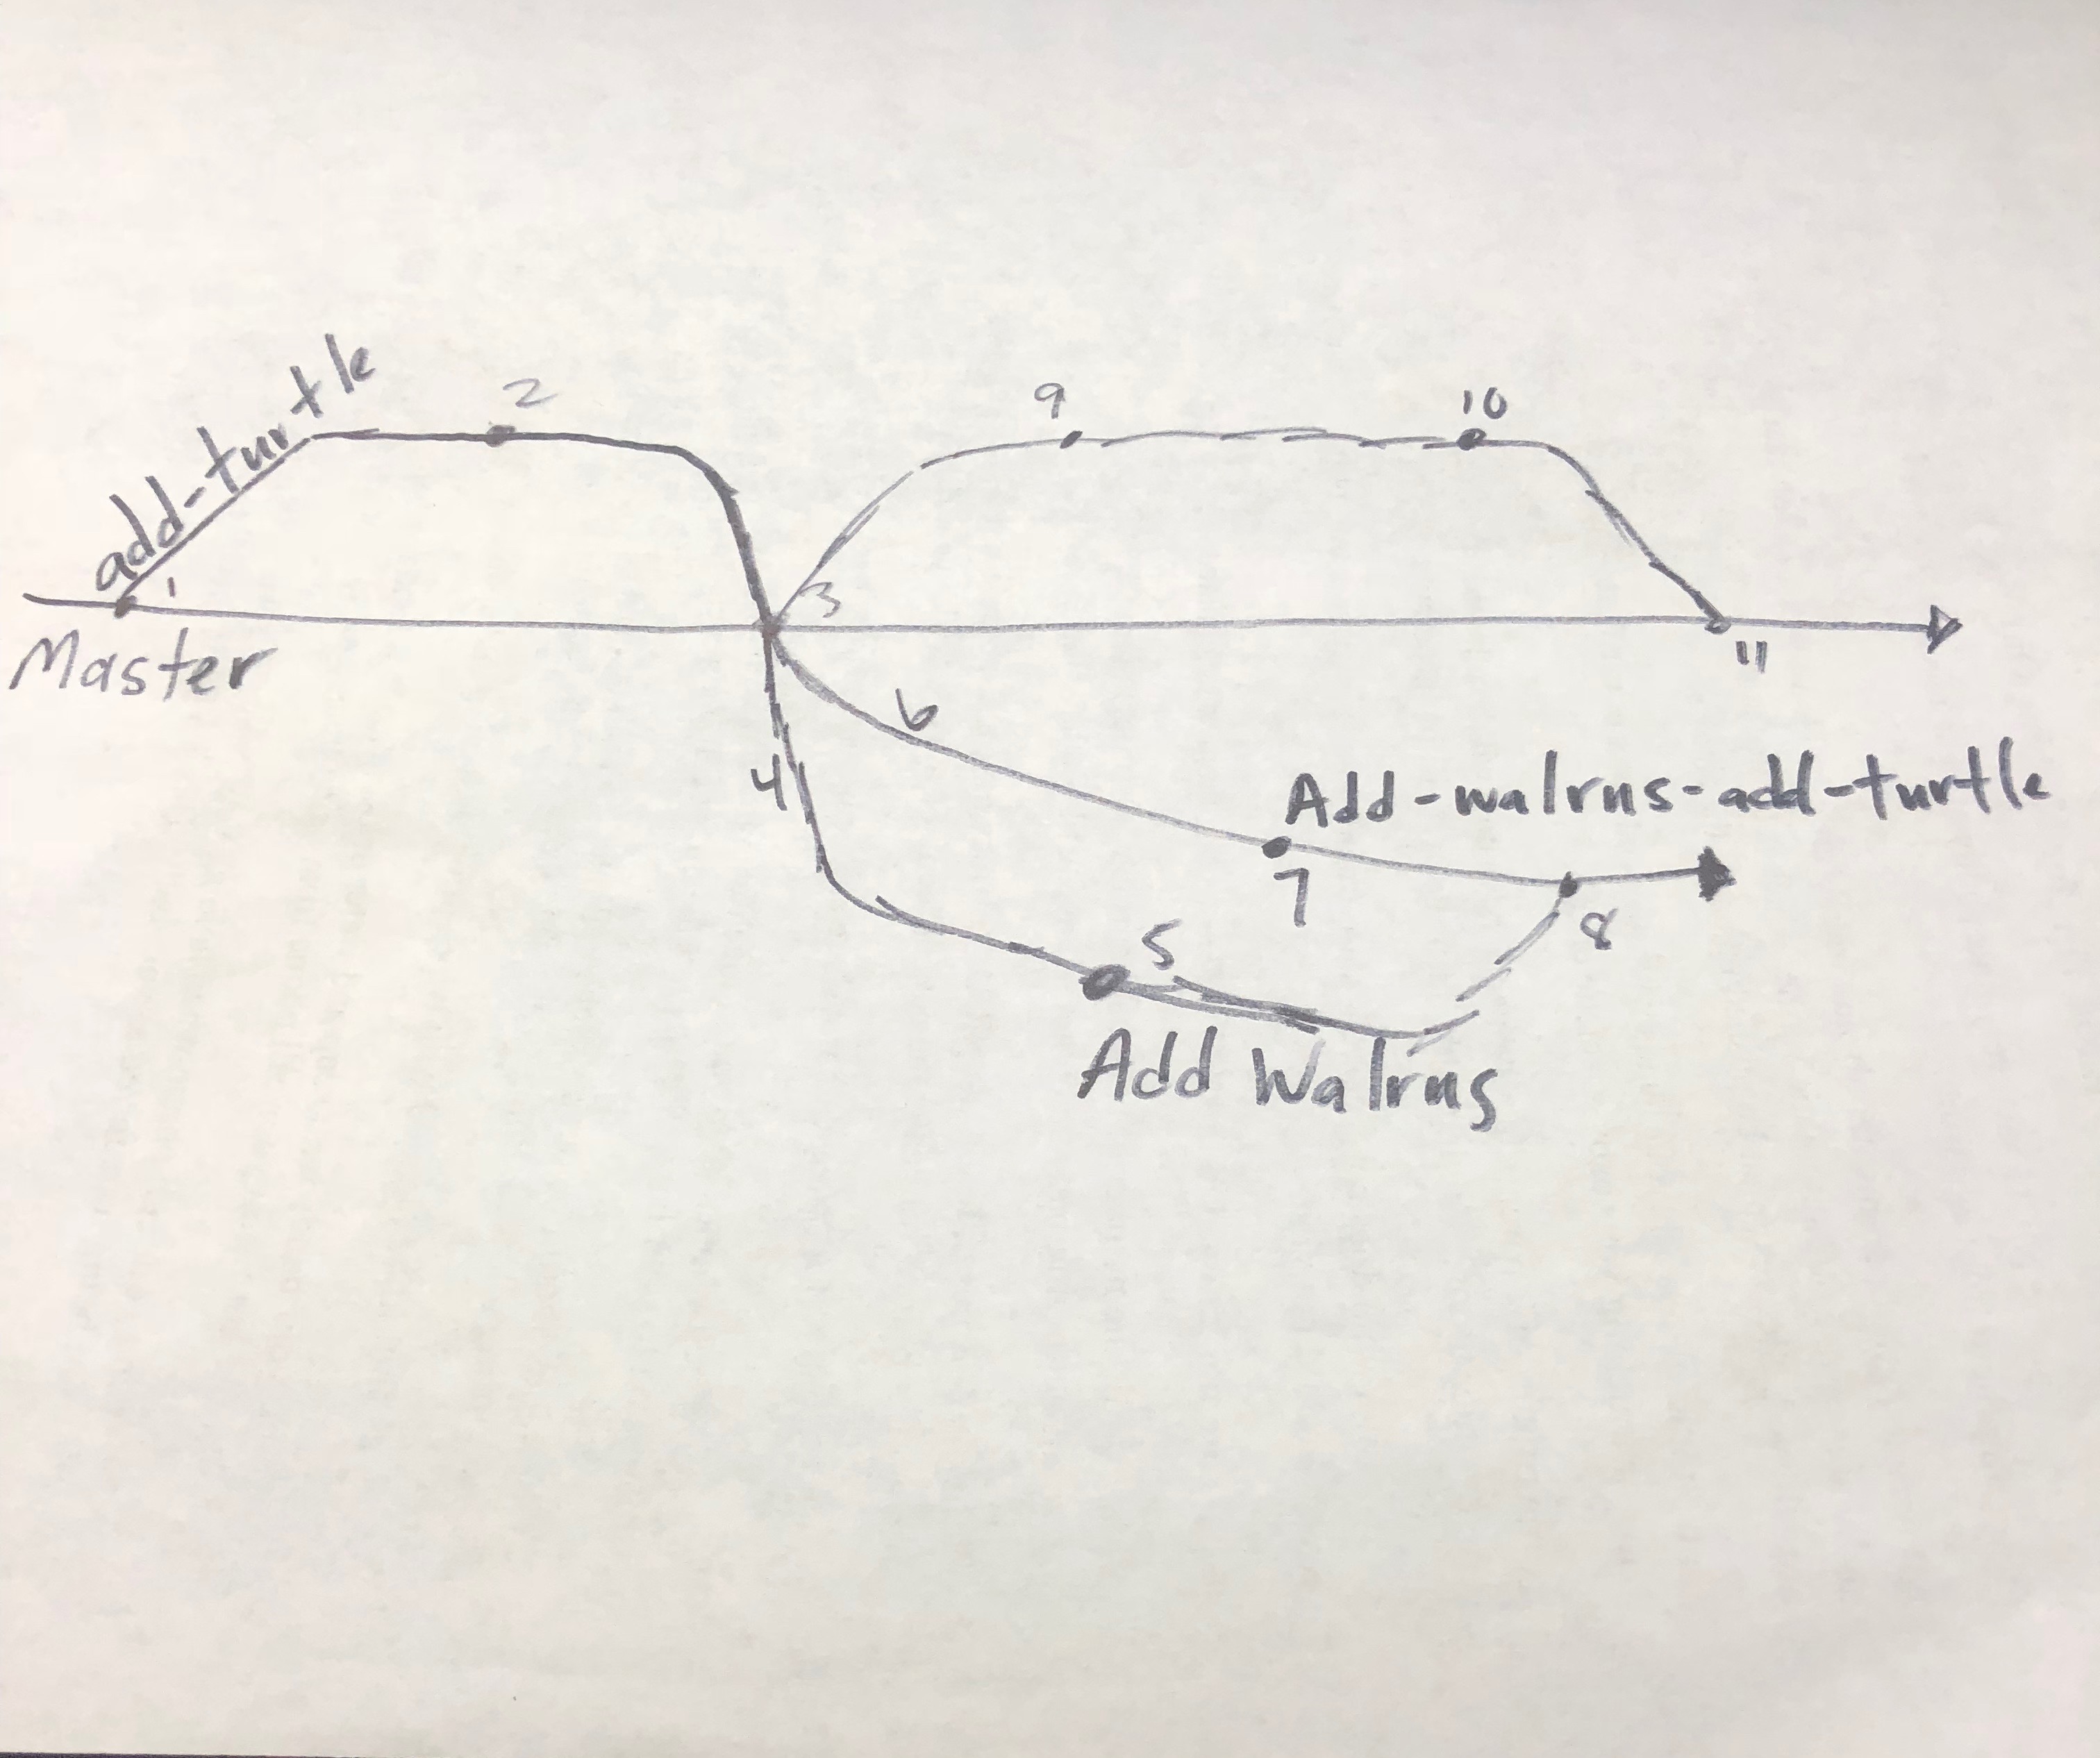 add-turtle
2
9
10
1
3
Master
11
6
4
Add-walrus-add-turtle
7
8
5
Add Walrus